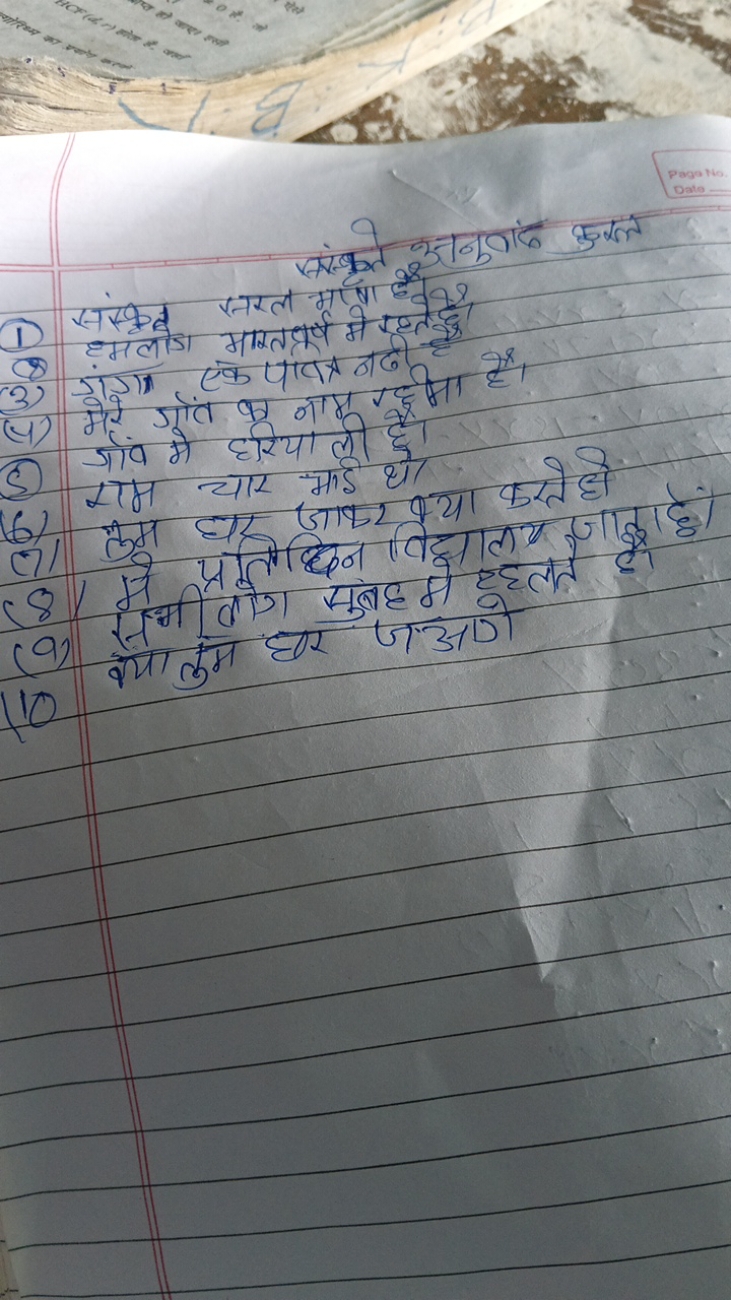 Page No.
Date
संस्कृत अनुवाद करल
① संस्कृत सरल भाषा है।
② हमलोग भारतवर्ष में रहते है।
(3) गंगा एक पवित्र नदी है
(4) मेरे गाँव का नाम है।
⑤ गाँव में हरियाली है।
(6) राम चार भाई थे।
(7) तुम घर जाकर क्या करते हो
(8) मैं प्रतिदिन विद्यालय जाता हूँ।
(9) सभी लोग सुबह में टहलते है।
(10 क्या तुम घर जाओगे